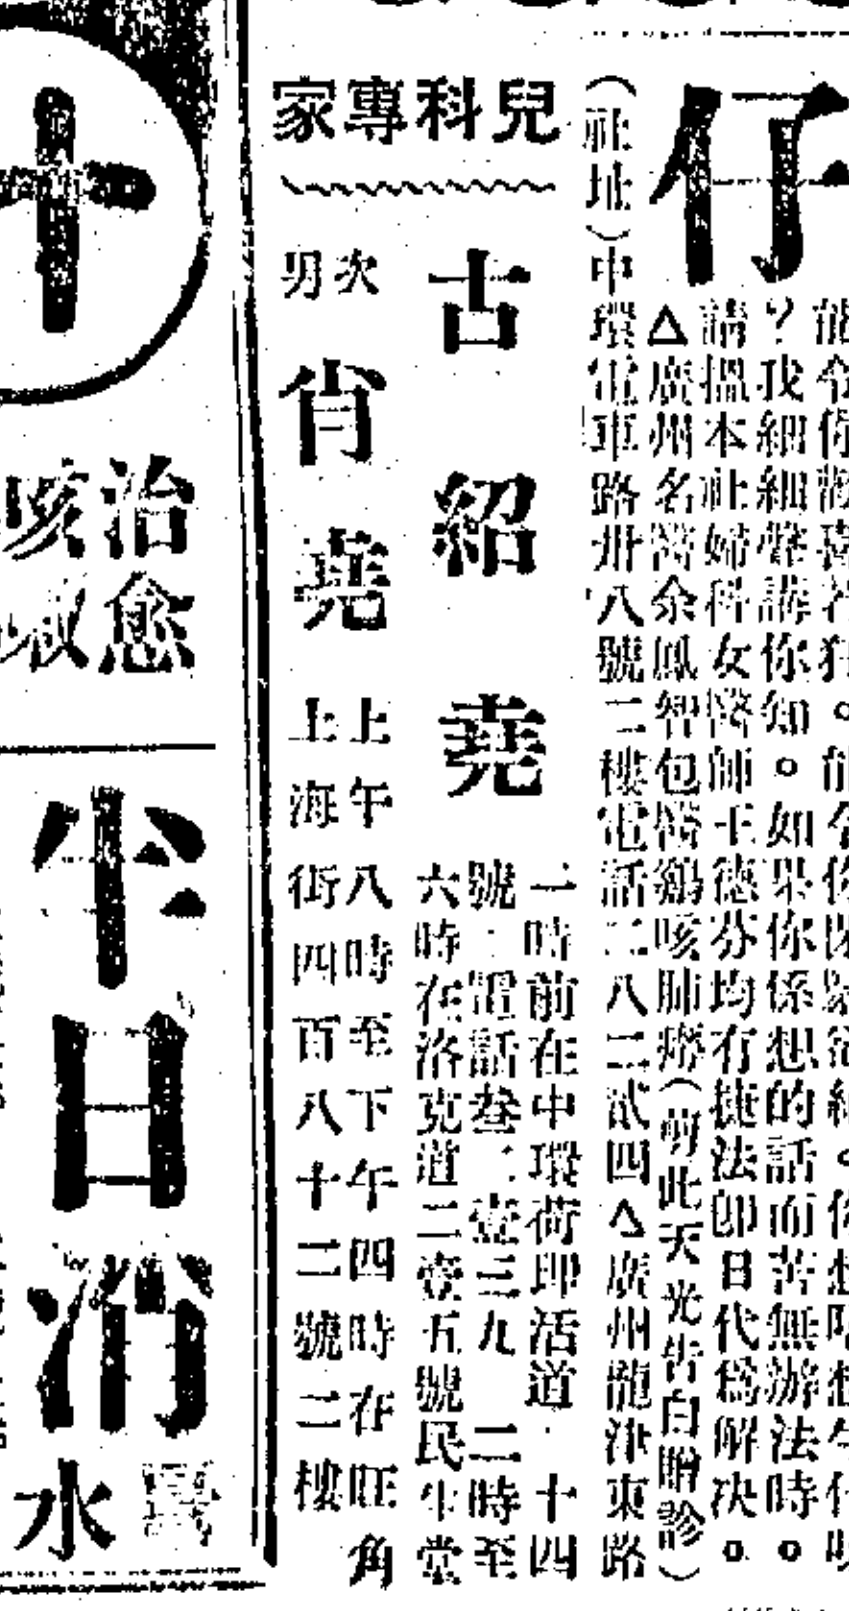 仔
？我細細聲講你知。如果你係想的話而苦無辦法時。
請搵本社婦科女醫師王德芬均有捷法即日代爲解决。
△廣州名醫余鳳智包醫鷄咳肺癆（剪此天光告白贈診）
（社址）中環電車路卅八號二樓電話二八二貳四△廣州龍津東路
兒科專家
古紹堯
一時前在中環荷李活道十四
號二電話叁二壹三九　二時至
六時在洛克道二壹五號民生堂
次男
肖堯
上午八時至下午四時在旺角
上海街四百八十二號二樓
十
治愈
咳
半日消
水